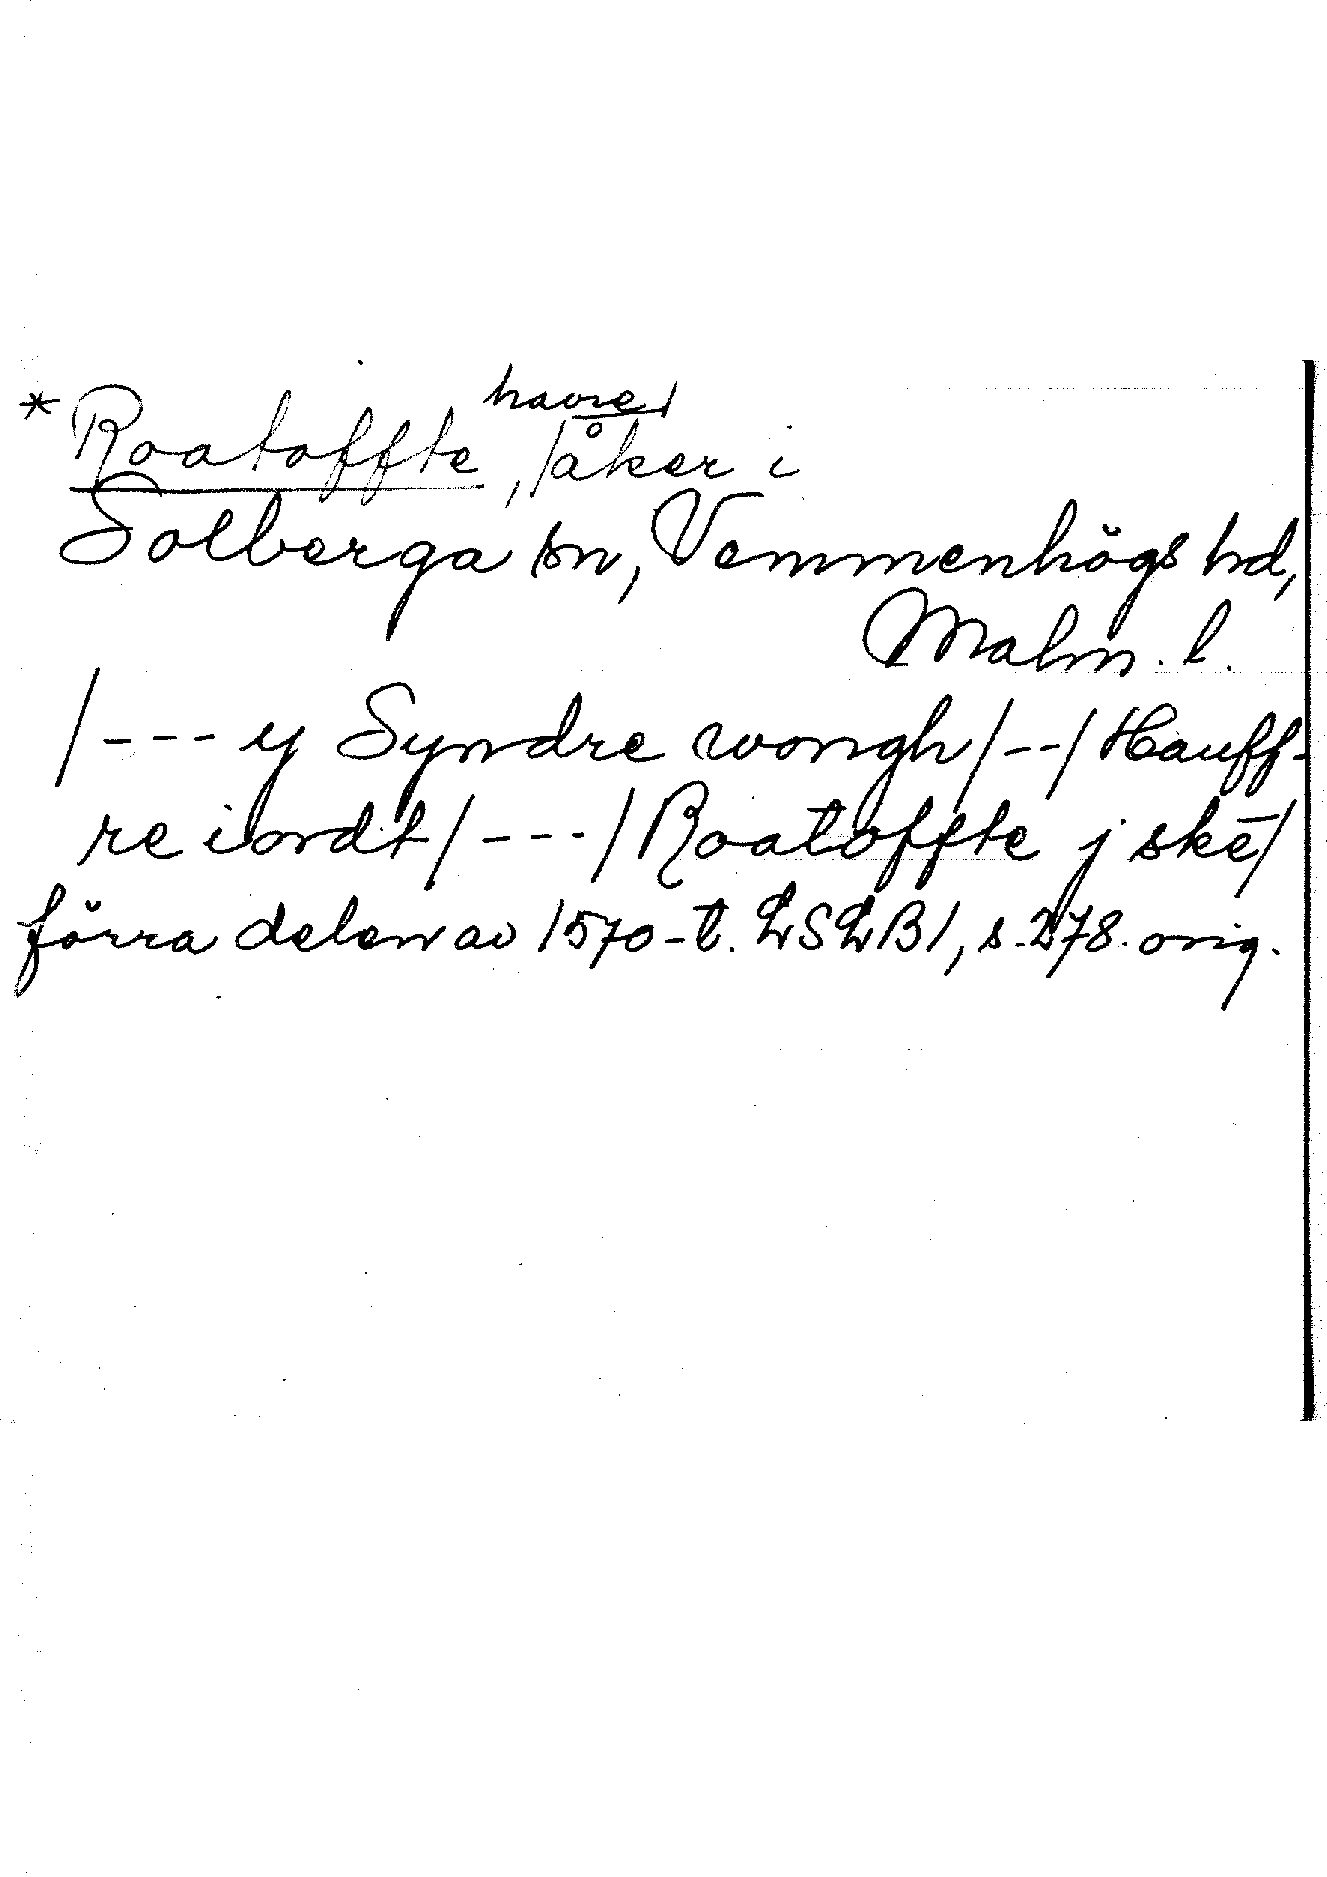 * Roatoffte, /havre/åker i
Solberga sn, Vemmenhögs hd,
Malm. l.
/--- y Syndre wongh /--/ Hauff-
re iordt /---/ Roatoffte j skē/
förra delen av 1570-t. LSLB1, s. 278. orig.